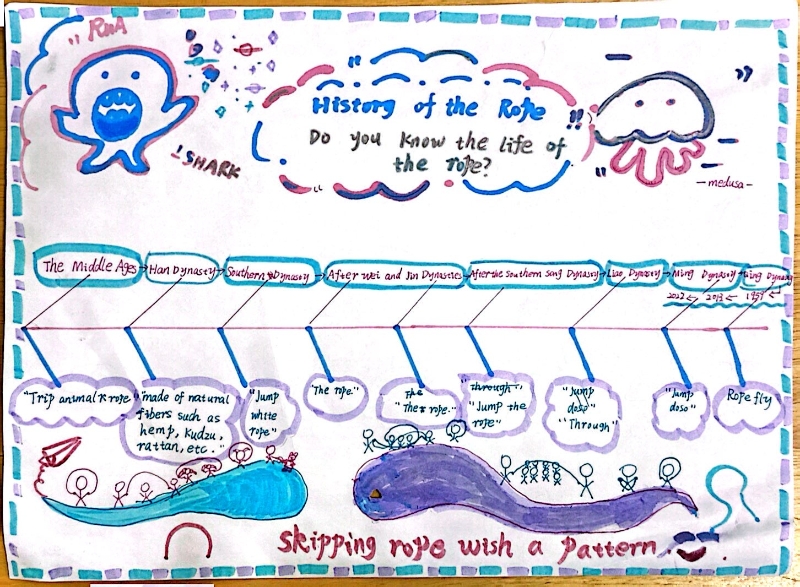 RnA
History of the Rope
Do you know the life of
the rope?
!SHARK
-medusa-
The Middle Ages
Han Dynasty
Southern Dynasty
After wei and Jin Dynasties
After the Southern Song Dynasty
Liao Dynasty
Ming Dynasty
Qing Dynasty
2022 ← 2013 ← 1959
"Trip animal R rope"
"made of natural
fibers such as
hemp, kudzu,
rattan, etc."
"Jump
white
rope"
"The rope."
The
"Ther rope."
"through,
"Jump the
rope"
"Jump
doso"
"Through"
"Jump
doso"
Rope fly
Skipping rope wish a pattern